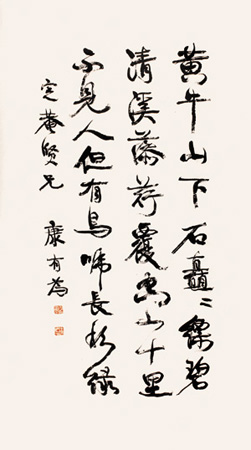 黃牛山下石矗〻碧
清溪藤荇覆山十里
不見人但有鳥啼長綠
定菴賢兄
康有為